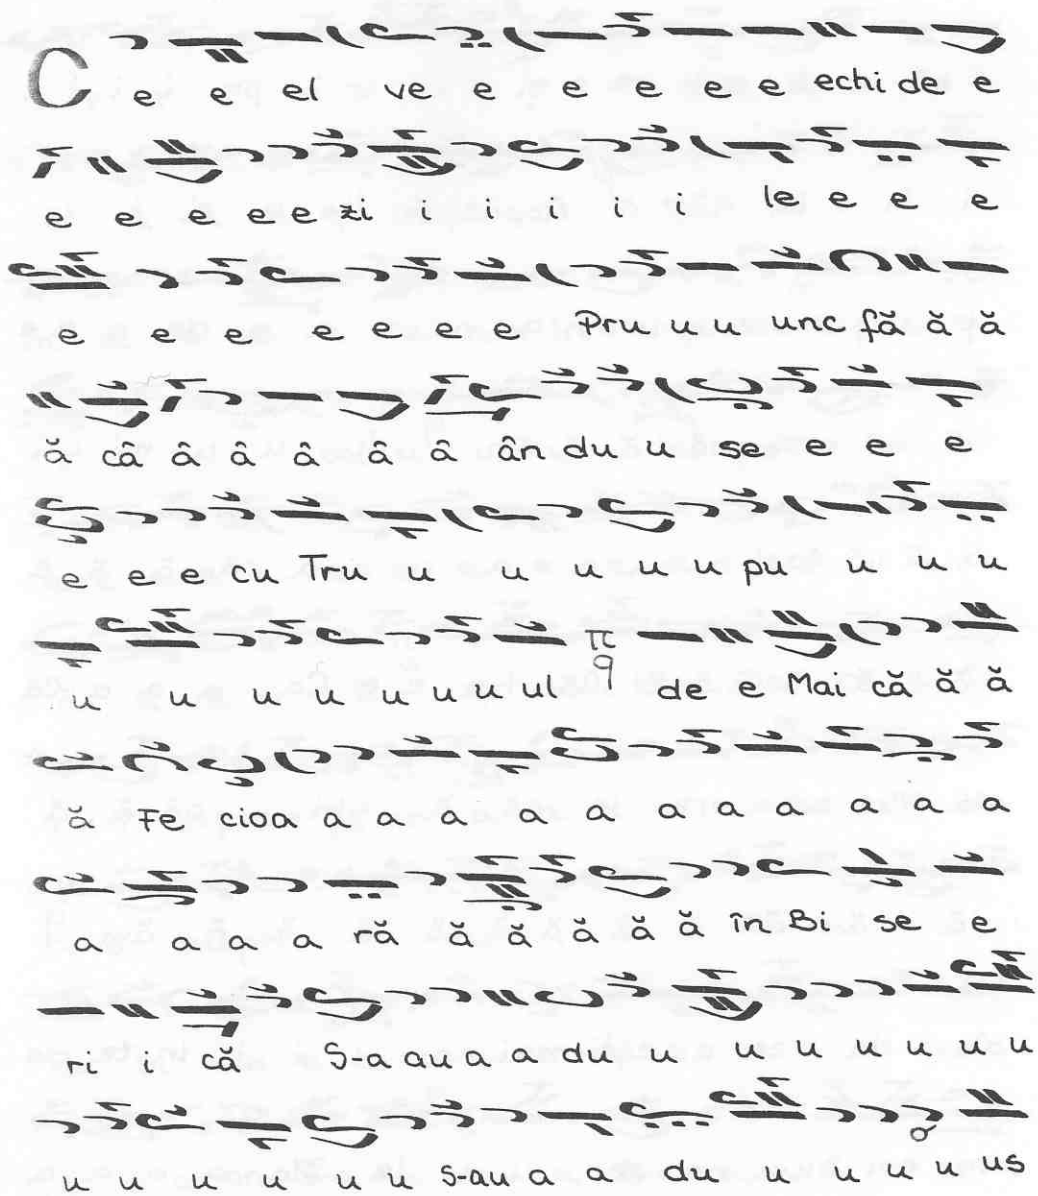 C e e el ve e e e e e echi de e
e e e e e zi i i i i i le e e e
e e e e e e e Pru u u unc fă ă ă
ă câ â â â â â ân du u se e e e
e e e cu Tru u u u u u pu u u u
u u u u u u u ul π q de e Mai că ă ă
ă Fe cioa a a a a a a a a a a a
a a a a ră ă ă ă ă ă în Bi se e
ri i că S-a au a a du u u u u u u u
u u u u u u S-au a a du u u u u us